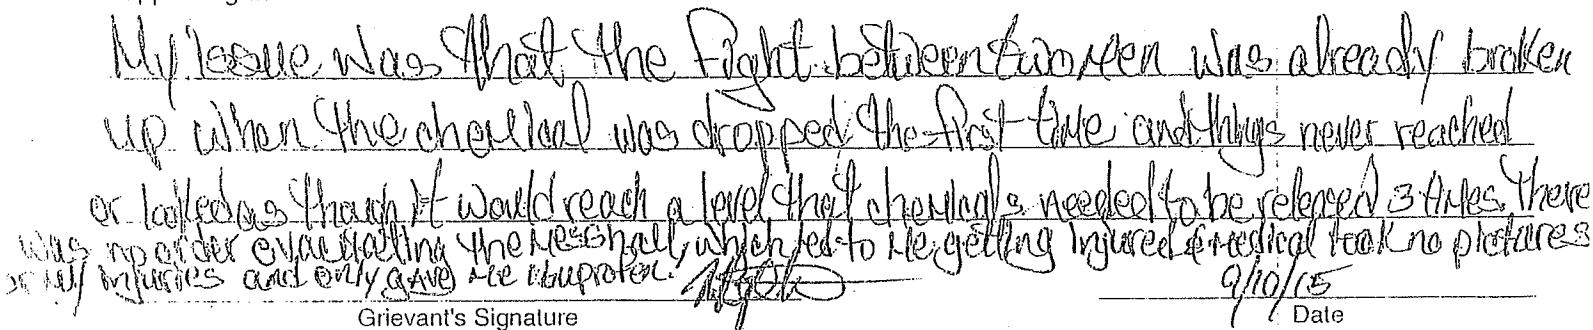 My issue was that the fight between two men was already broken
up when the chemical was dropped the first time and things never reached
or looked as though it would reach a level that chemicals needed to be released 3 times. There
was no order evacuating the messhall, which led to me getting injured & medical took no pictures
of my injuries and only gave me ibuprofen.
9/10/15
Grievant's Signature
Date